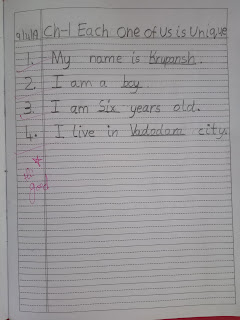 Ch-1 Each One of Us is Unique
1. My name is Krupansh.
2. I am a boy.
3. I am Six years old.
4. I live in Vadodara city.
good